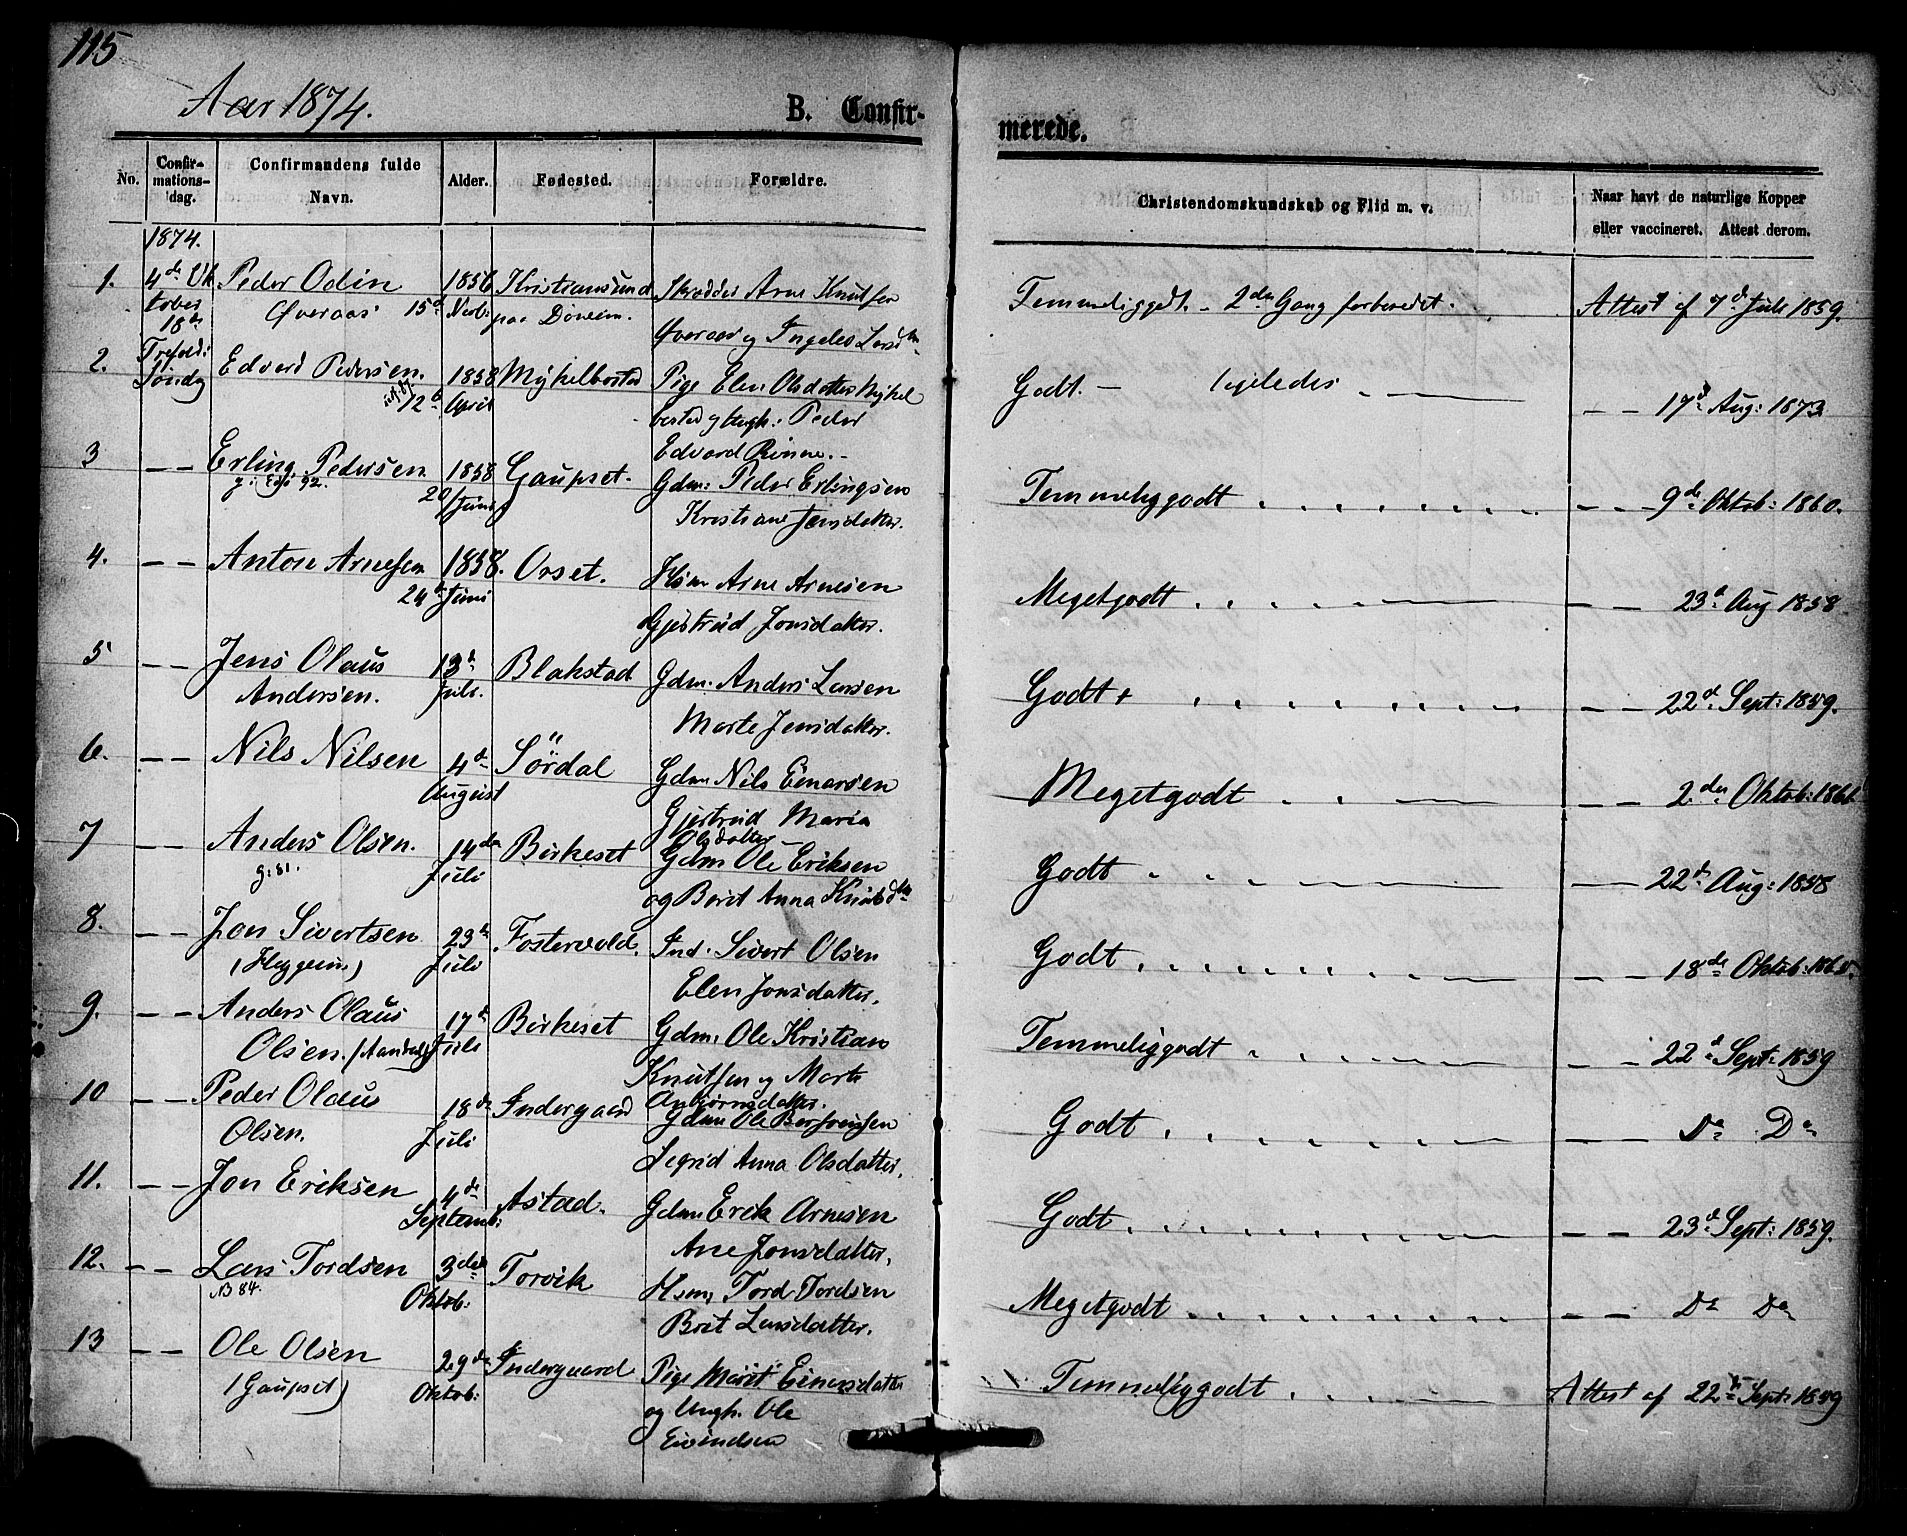 115
Aar 1874.
B. Confir-
merede.
No.
Confir-
mations-
dag.
Confirmandens fulde
Navn.
Alder.
Fødested.
Forældre.
Christendomskundskab og Flid m. v.
Naar havt de naturlige Kopper
eller vaccineret. Attest derom.
1874.
1. 4de Ok Peder Odin 1856 Kristiansund Skrædder Arne Knutsen
tober Øveraas 15d Novb: paa Döneim.
18de og Ingeleo Larsd
Temmeliggodt. - 2den Gang forberedet. Attest af 7d Juli 1859.
2. Trefold: Edvard Pedersen. 1858 Mykelbostad Pige Elen Olsdatter Mykel
Söndg 12te April bostad og Ungk: Peder
Edvard Rinne. -
Godt. - ligeledes - - - 17d Aug: 1873
3 - - Erling Pedersen. 1858 Gaupset. Gdm: Peder Erlingsen
92. 20/Juni Kristiane Jensdatter.
Temmeliggodt - - 9de Oktob: 1860.
4. - - Anton Arnesen 1858. Orset. Hsm Arne Arnesen
24de Juni Gjertrud Jonsdatter.
Megetgodt - - 23d Aug 1858
5 - - Jens Olaus 13de Blakstad Gdm. Anders Larsen
Andersen. Juli. Marte Jensdatter.
Godt + - - 22d Sept: 1859.
6. - - Nils Nilsen 4de Sördal Gdm Nils Einarsen
August Gjertrud Maria
Olsdatter
Megetgodt - - 2den Oktob: 1861
7 - - Anders Olsen. 14de Birkeset Gdm Ole Eriksen
g: 81. Juli og Borit Anna Knutsdtr
Godt - - 22de Aug: 1858
8. - - Jon Sivertsen 23de Fostervold. Ind. Sivert Olsen
(Heggeim) Juli Elen Jonsdatter.
Godt - - 18de Oktob: 1860.
9. - - Anders Olaus 17de Birkeset Gdm. Ole Kristian
Olsen. (Aandal) Juli Knutsen og Marte
Anbjörnsdatter.
Temmeliggodt - - 22d Sept: 1859
10 - - Peder Olaus 18de Indergaard Gdm Ole
Olsen. Juli Segrid Anna Olsdatter.
Godt - - Do Do
11. - - Jon Eriksen 4de Astad. Gdm Erik Arnesen
Septemb: Ane Jonsdatter.
Godt - - 23d Sept: 1859.
12. - - Lars Tordsen 3die Torvik Hsm, Tord Tordsen
NB 84. Oktob: Brit Larsdatter.
Megetgodt - - Do Do
13 - - Ole Olsen 29de Indergaard Pige Marit Einarsdatter
(Gaupset) Oktob: og Ungk. Ole
Eivindsen
Temmeliggodt Attest af 22de Sept: 1859